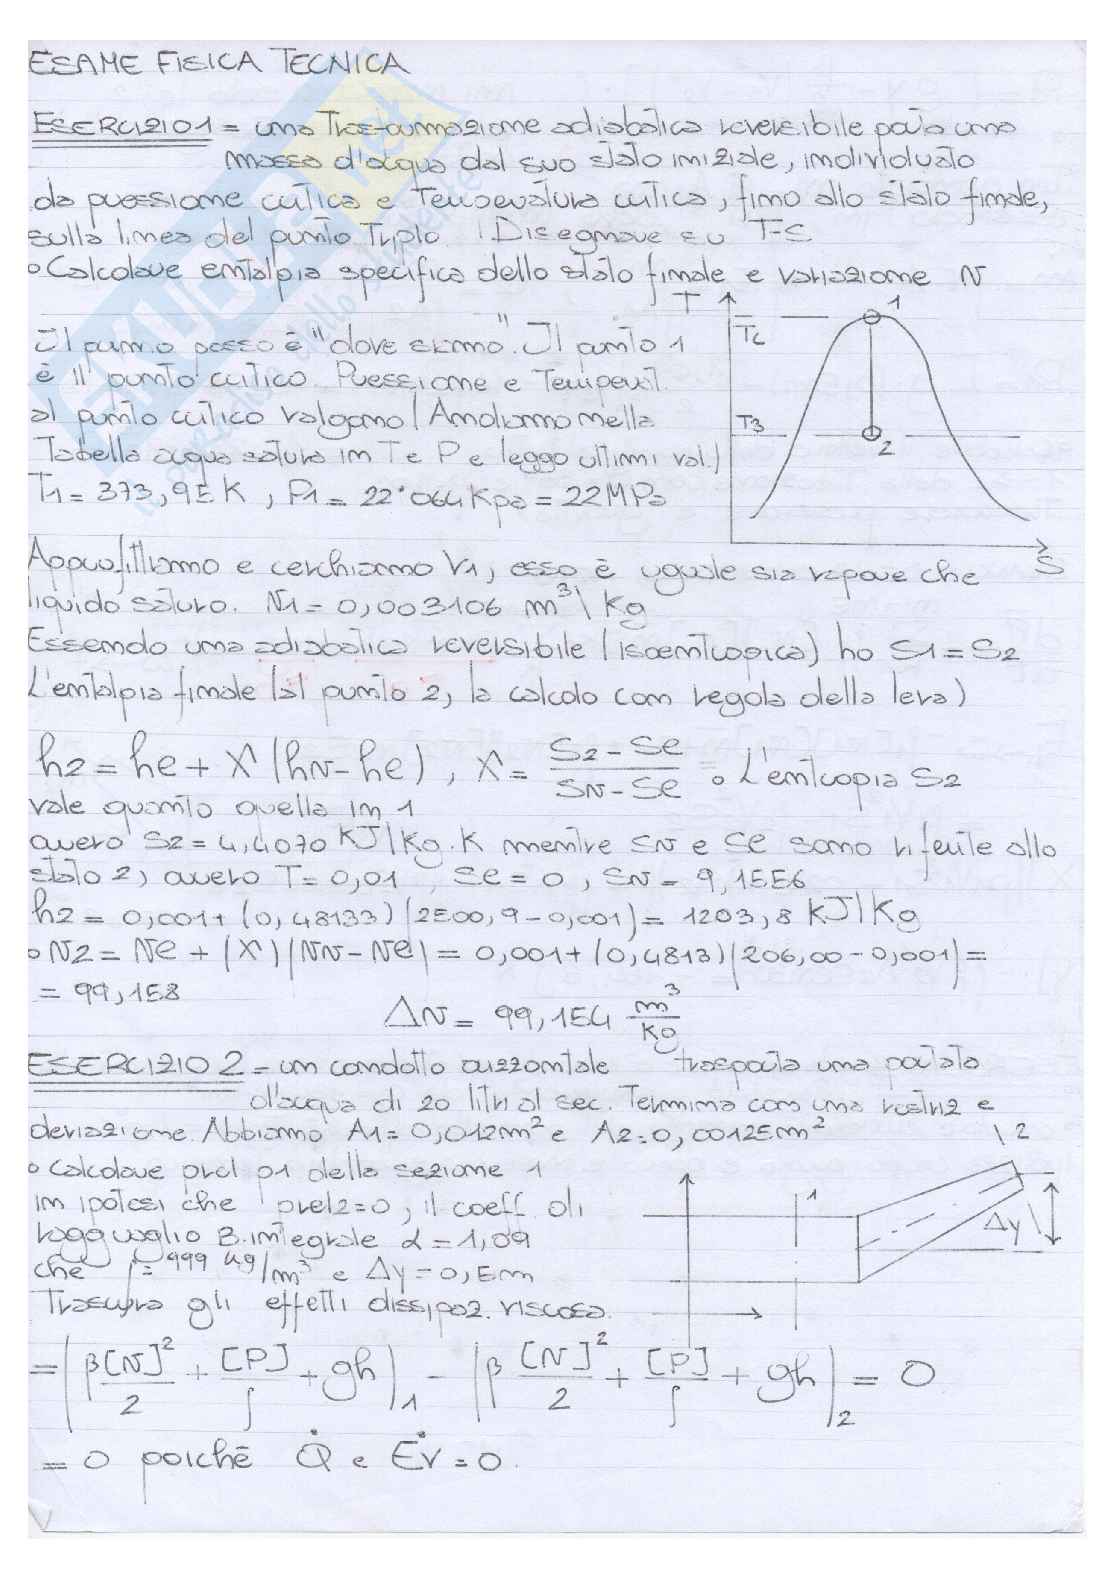 ESAME FISICA TECNICA
ESERCIZIO 1 = una Trasformazione adiabatica reversibile porta una
massa d'acqua dal suo stato iniziale, individuato
da pressione critica e Temperatura critica, fino allo stato finale,
sulla linea del punto Triplo (Disegnare su T-S
• Calcolare entalpia specifica dello stato finale e variazione v
Il primo passo è "dove siamo". Il punto 1
è il punto critico. Pressione e Temperat.
al punto critico valgono (Andiamo nella
Tabella acqua satura in T e P e leggo ultimi val.)
T1 = 373,95 K , P1 = 22'064 Kpa = 22 MPa
T
Tc
1
T3
2
S
Approfittiamo e cerchiamo V1, esso è uguale sia vapore che
liquido saturo. v1 = 0,003106 m³\ Kg
Essendo una adiabatica reversibile (isoentropica) ho S1 = S2
L'entalpia finale (al punto 2, la calcolo con regola della leva)
h2 = he + X (hv - he) , X = S2 - Se / Sv - Se • L'entropia S2
vale quanto quella in 1
ovvero S2 = 4,4070 KJ/Kg·K mentre Sv e Se sono riferite allo
stato 2, ovvero T = 0,01 , Se = 0 , Sv = 9,1556
h2 = 0,001 + (0,48133) (2500,9 - 0,001) = 1203,8 KJ/Kg
• v2 = ve + (X) (vv - ve) = 0,001 + (0,4813) (206,00 - 0,001) =
= 99,158
Δv = 99,154 m³/Kg
ESERCIZIO 2 = un condotto orizzontale trasporta una portata
d'acqua di 20 litri al sec. Termina con una restriz e
deviazione. Abbiamo A1 = 0,012 m² e A2 = 0,00125 m²
• Calcolare prel p1 della sezione 1
in ipotesi che prel2 = 0, il coeff. di
ragguaglio B. integrale α = 1,09
che ρ = 999 Kg/m³ e Δy = 0,5 m
Trascura gli effetti dissipaz. viscosa.
1
2
Δy
= (β [v]²/2 + [P]/ρ + gh)1 - (β [v]²/2 + [P]/ρ + gh)2 = 0
= 0 poiché Q̇ e Ėv = 0.